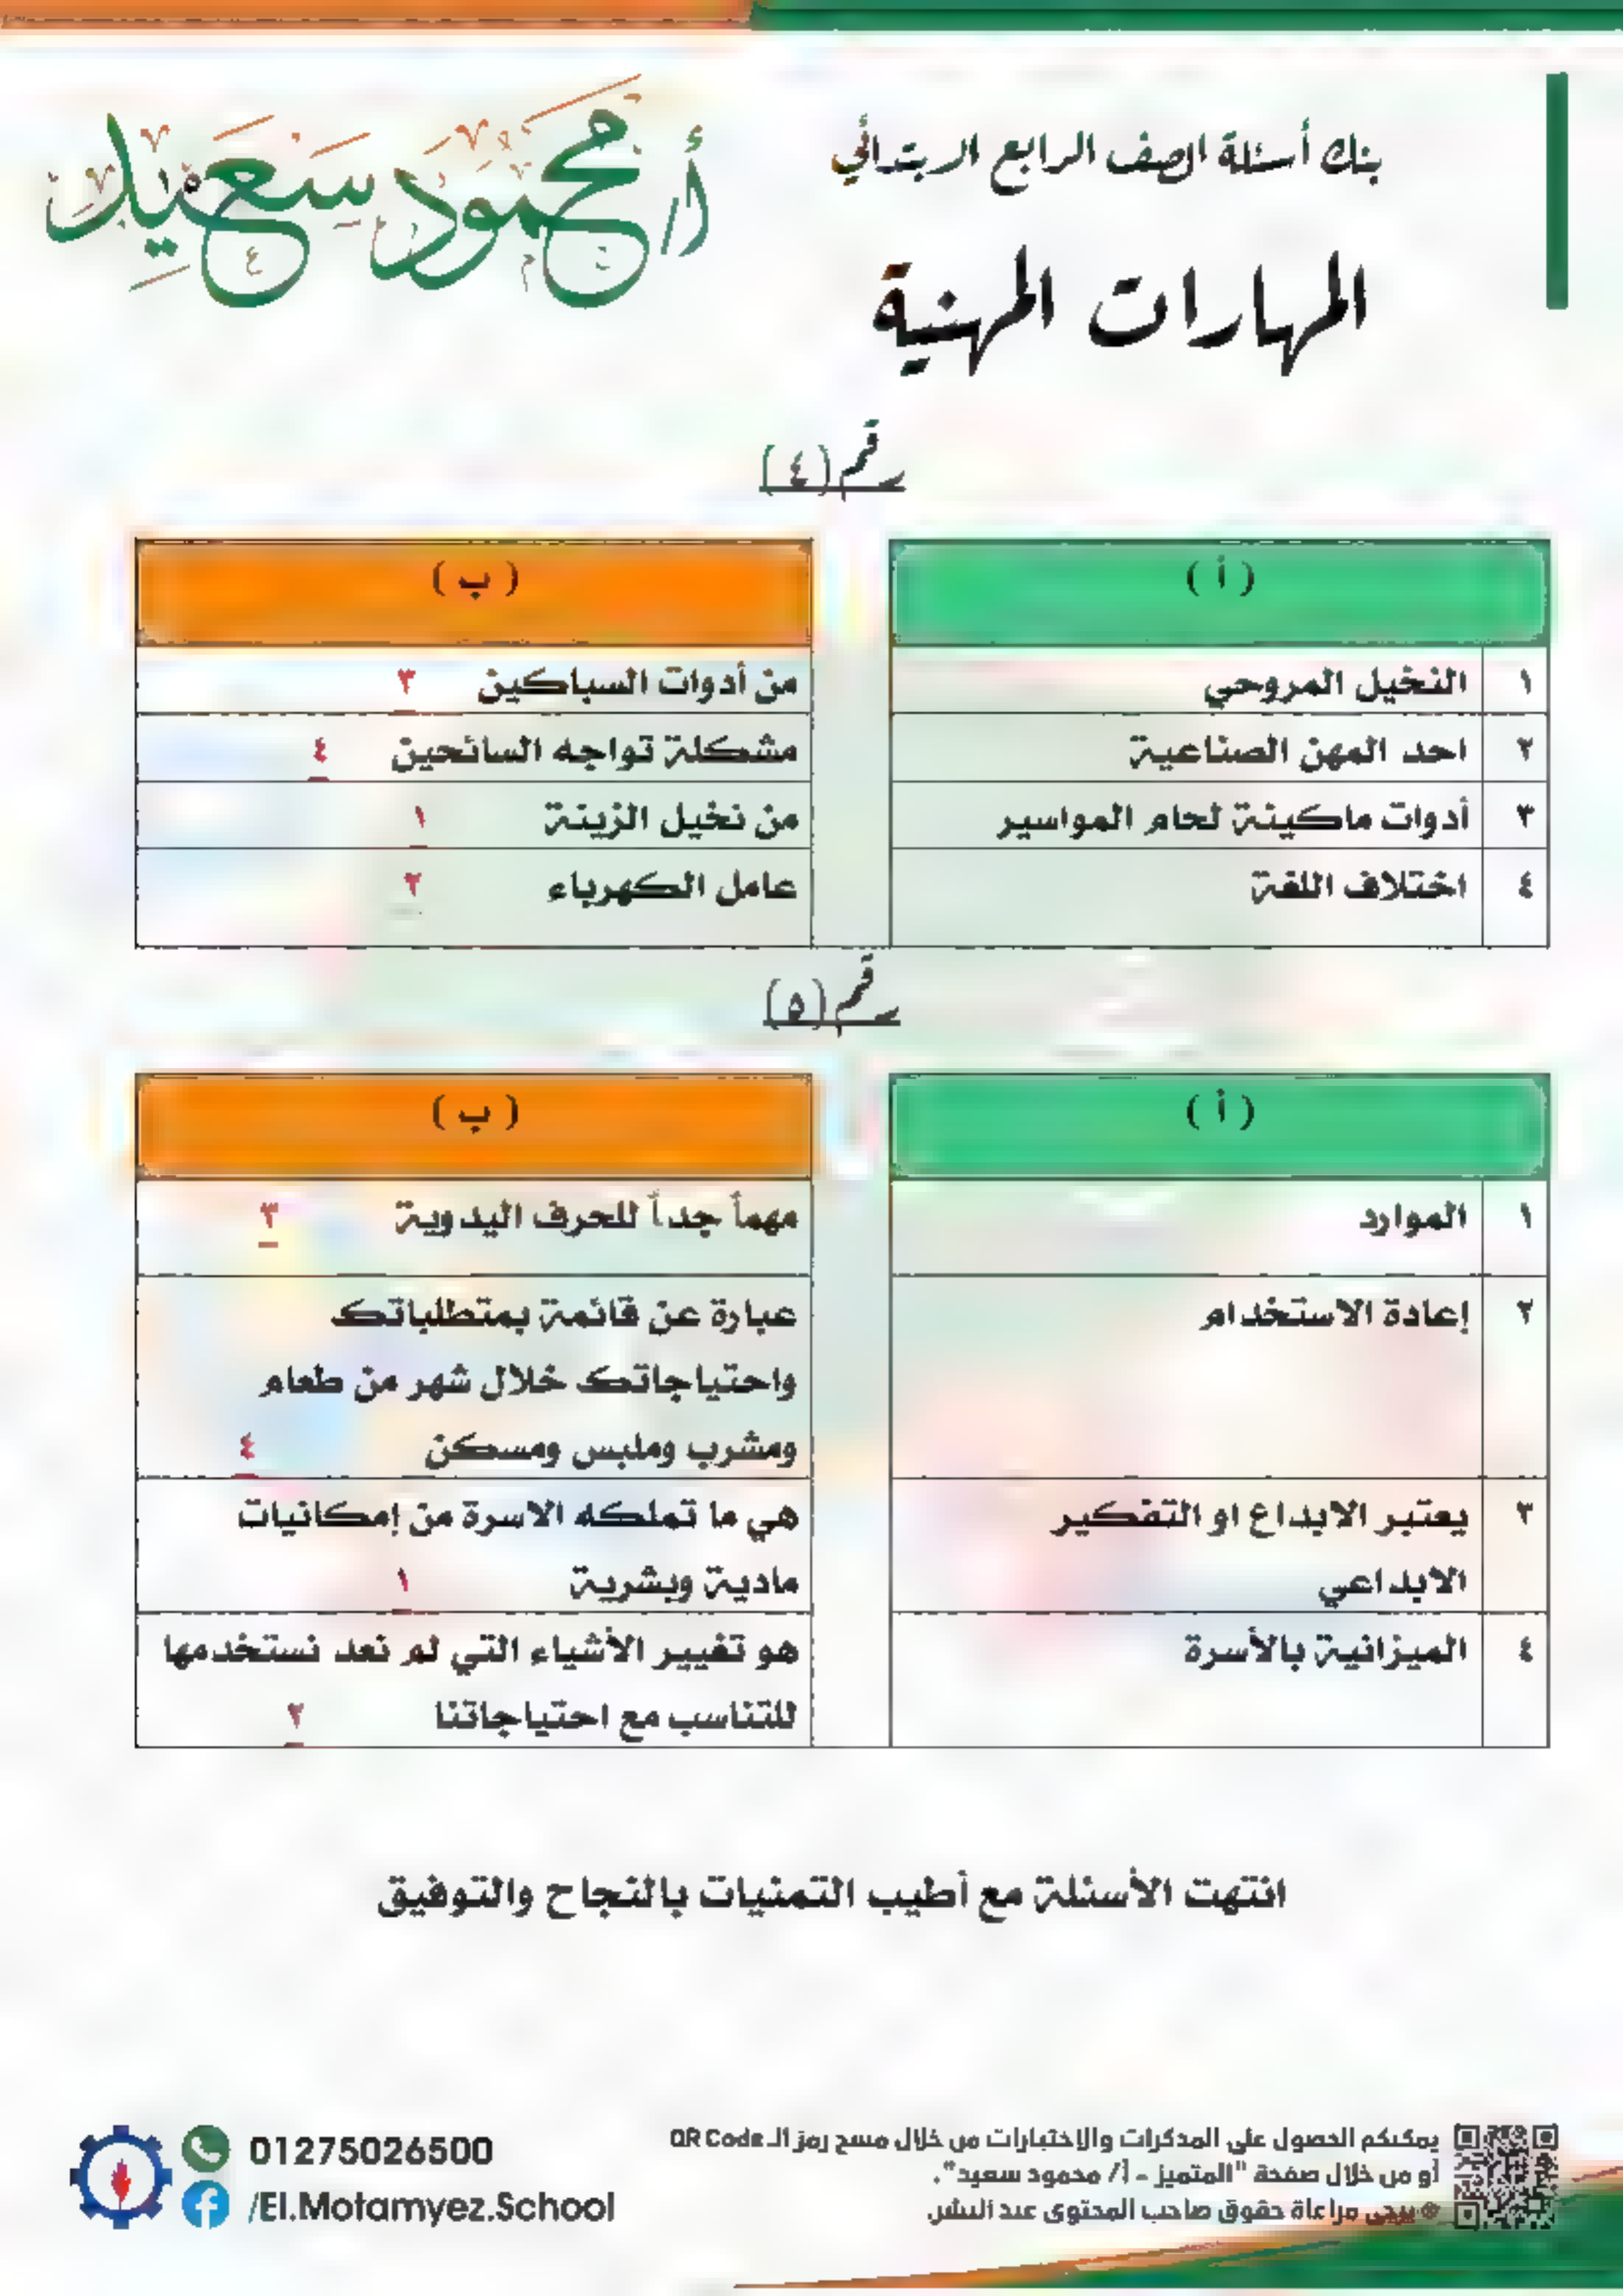 بنك أسئلة الصف الرابع الابتدائي
المهارات المهنية
أ/ محمود سعيد
رقم (٤)
( أ )
( ب )
١ النخيل المروحي
من أدوات السباكين ٣
٢ احد المهن الصناعية
مشكلة تواجه السائحين ٤
٣ أدوات ماكينة لحام المواسير
من نخيل الزينة ١
٤ اختلاف اللغة
عامل الكهرباء ٢
رقم (٥)
( أ )
( ب )
١ الموارد
مهماً جداً للحرف اليدوية ٣
٢ إعادة الاستخدام
عبارة عن قائمة بمتطلباتك
واحتياجاتك خلال شهر من طعام
ومشرب وملبس ومسكن ٤
٣ يعتبر الابداع او التفكير
الابداعي
هي ما تملكه الاسرة من إمكانيات
مادية وبشرية ١
٤ الميزانية بالأسرة
هو تغيير الأشياء التي لم نعد نستخدمها
للتناسب مع احتياجاتنا ٢
انتهت الأسئلة مع أطيب التمنيات بالنجاح والتوفيق
يمكنكم الحصول على المذكرات والاختبارات من خلال مسح رمز الـ QR Code
أو من خلال صفحة "المتميز - أ/ محمود سعيد".
* يرجى مراعاة حقوق صاحب المحتوى عند النشر.
01275026500
/El.Motamyez.School